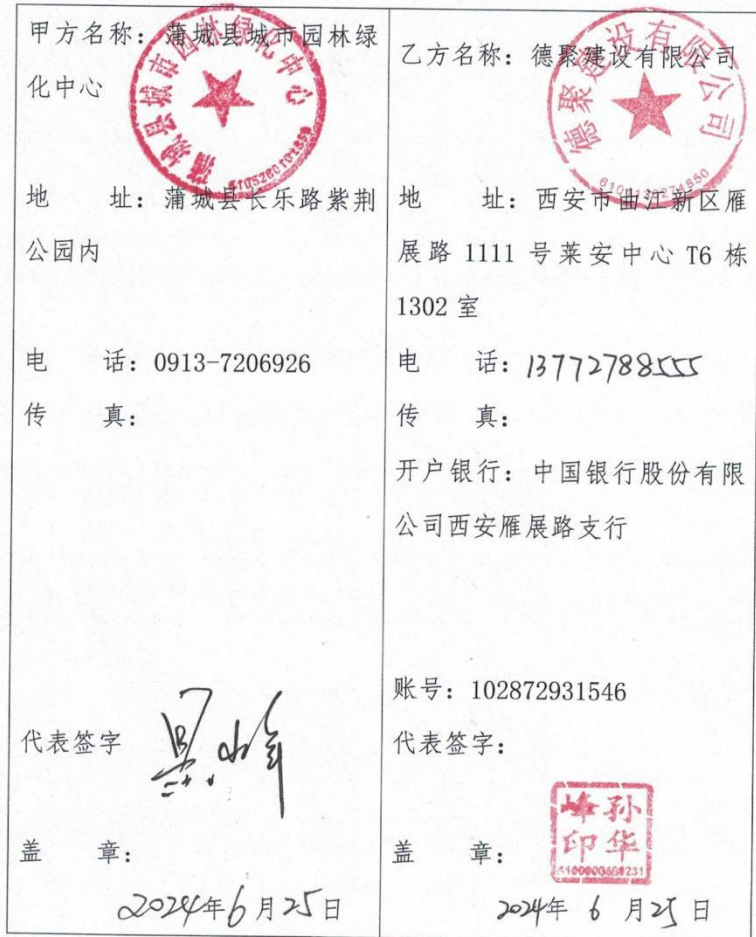 甲方名称：蒲城县城市园林绿
化中心
蒲城县城市园林绿化中心
地 址：蒲城县长乐路紫荆
公园内
电 话：0913-7206926
传 真：
代表签字
盖 章：
2024年6月25日
乙方名称：德聚建设有限公司
德聚建设有限公司
地 址：西安市曲江新区雁
展路 1111 号莱安中心 T6 栋
1302 室
电 话：13772788555
传 真：
开户银行：中国银行股份有限
公司西安雁展路支行
账号：102872931546
代表签字：
孙华峰印
盖 章：
2024年 6 月25日